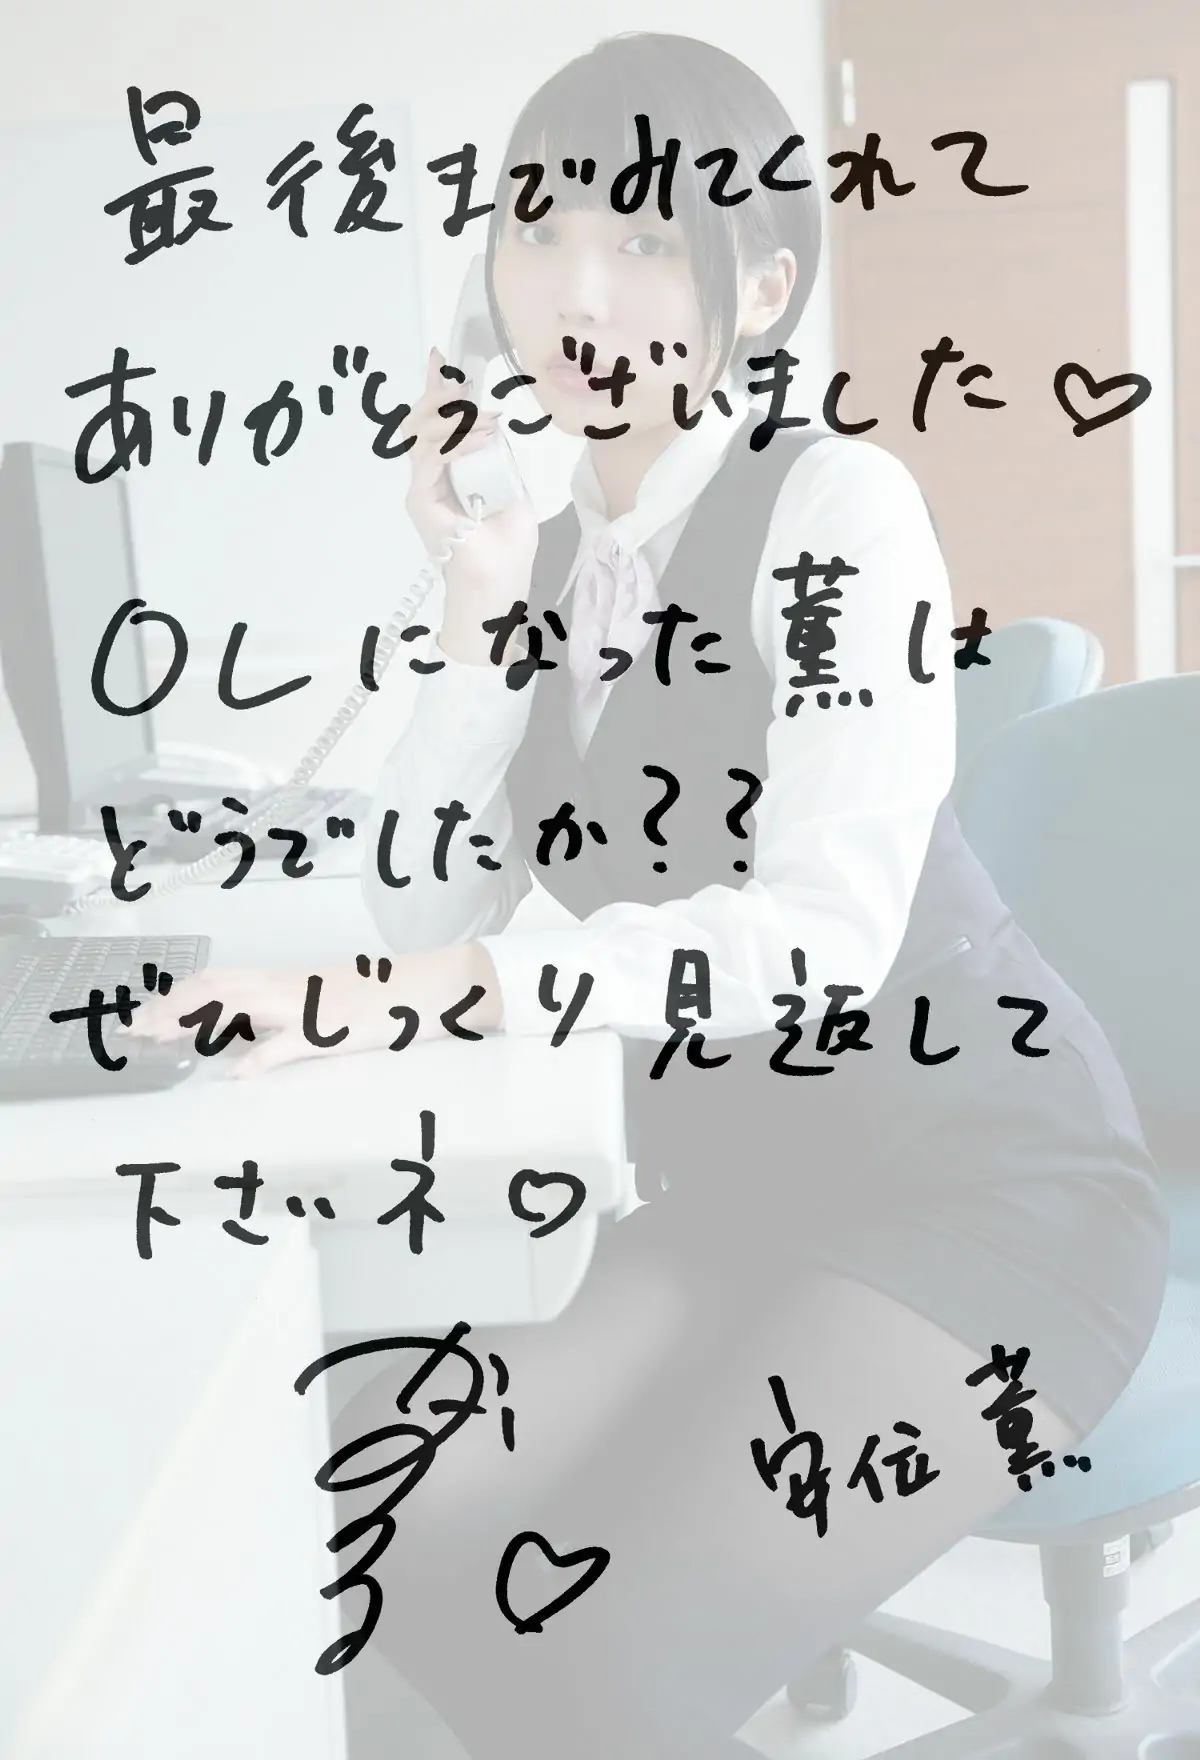 最後までみてくれて
ありがとうございました♡
OLになった薫は
どうでしたか??
ぜひじっくり見返して
下さいネ♡
かおる♡
安位薫